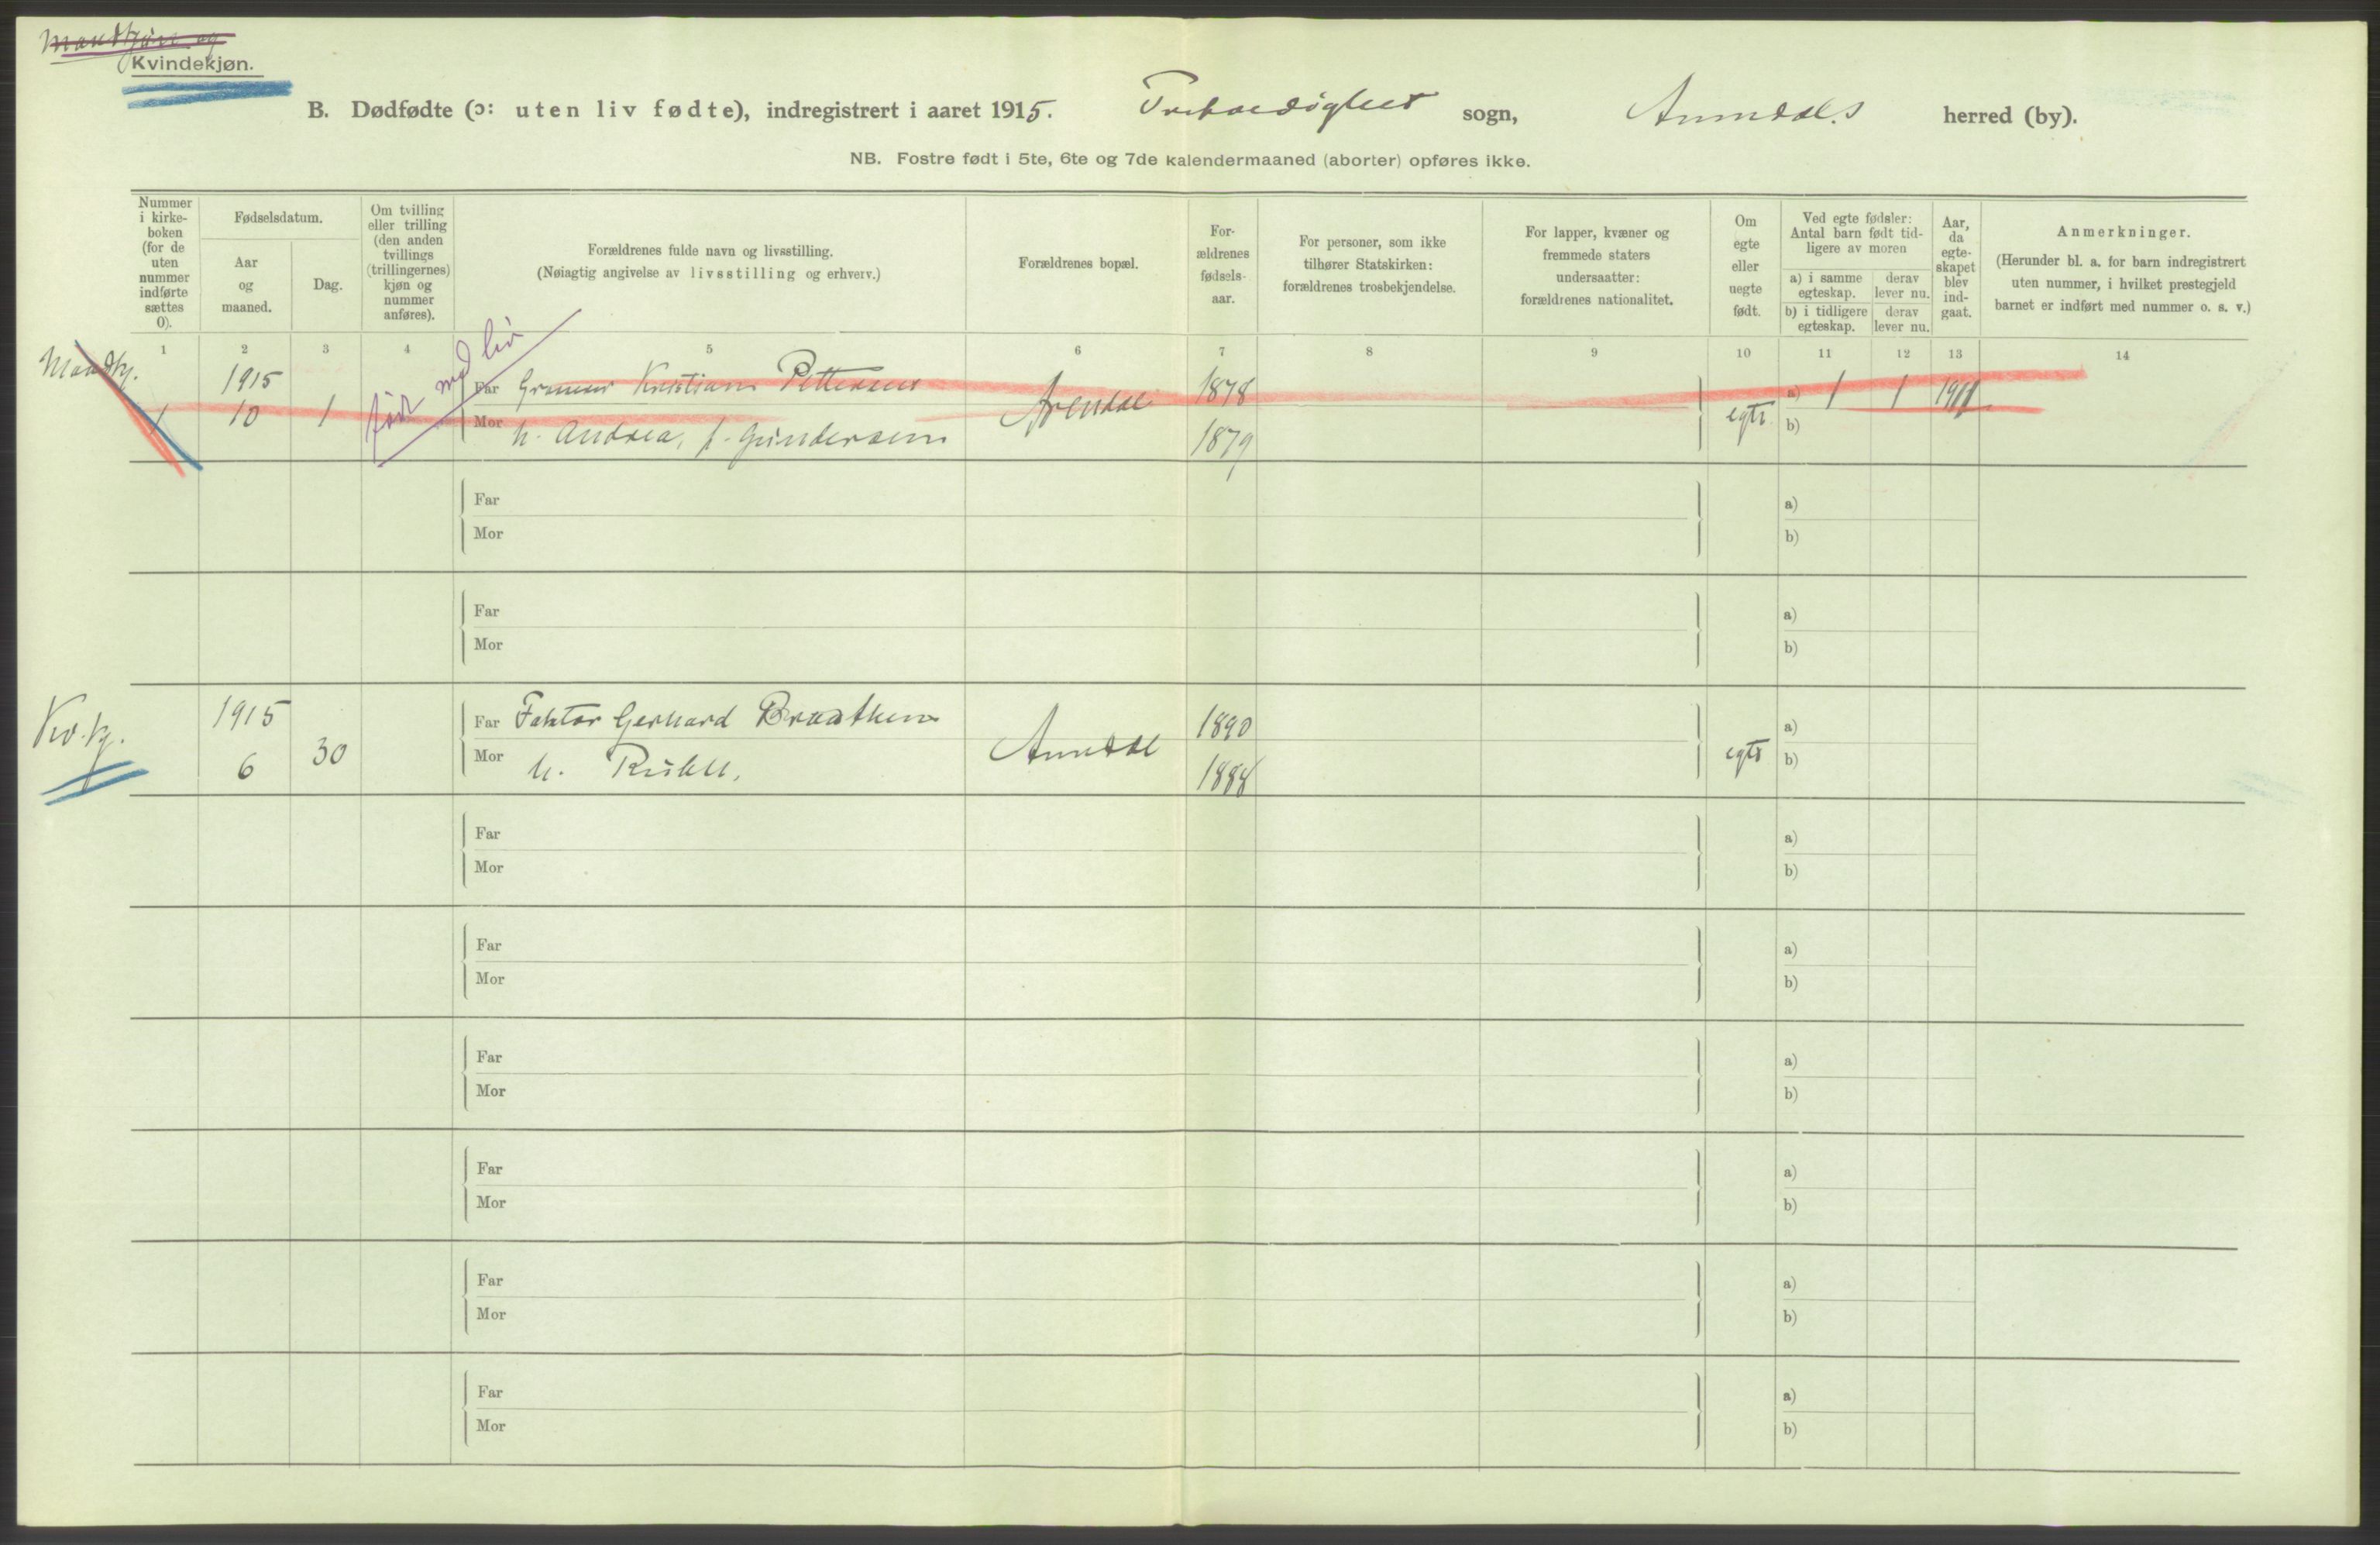 Mandkjøn og
Kvindekjøn.
B. Dødfødte (ɔ: uten liv fødte), indregistrert i aaret 1915. Trefoldighet sogn, Arendals herred (by).
NB. Fostre født i 5te, 6te og 7de kalendermaaned (aborter) opføres ikke.
Nummer i kirke-boken (for de uten nummer indførte sættes 0).
Fødselsdatum.
Aar og maaned.
Dag.
Om tvilling eller trilling (den anden tvillings (trillingernes) kjøn og nummer anføres).
Forældrenes fulde navn og livsstilling.
(Nøiagtig angivelse av livsstilling og erhverv.)
Forældrenes bopæl.
For-ældrenes fødsels-aar.
For personer, som ikke tilhører Statskirken: forældrenes trosbekjendelse.
For lapper, kvæner og fremmede staters undersaatter: forældrenes nationalitet.
Om egte eller uegte født.
Ved egte fødsler: Antal barn født tid-ligere av moren
a) i samme egteskap.
derav lever nu.
b) i tidligere egteskap.
derav lever nu.
Aar, da egte-skapet blev ind-gaat.
Anmerkninger.
(Herunder bl. a. for barn indregistrert uten nummer, i hvilket prestegjeld barnet er indført med nummer o. s. v.)
1 2 3 4 5 6 7 8 9 10 11 12 13 14
Mandkj.
født med liv
1915 Far Kristian Pettersen 1878 a) 1 1 1911
1 10 1 Arendal egte
Mor h. Andrea, f. Gundersen 1879 b)
Far a)
Mor b)
Far a)
Mor b)
Kv.kj.
1915 Far Faktor Gerhard Braathen 1890 a)
6 30 Arendal egte
Mor h. 1888 b)
Far a)
Mor b)
Far a)
Mor b)
Far a)
Mor b)
Far a)
Mor b)
Far a)
Mor b)
Far a)
Mor b)